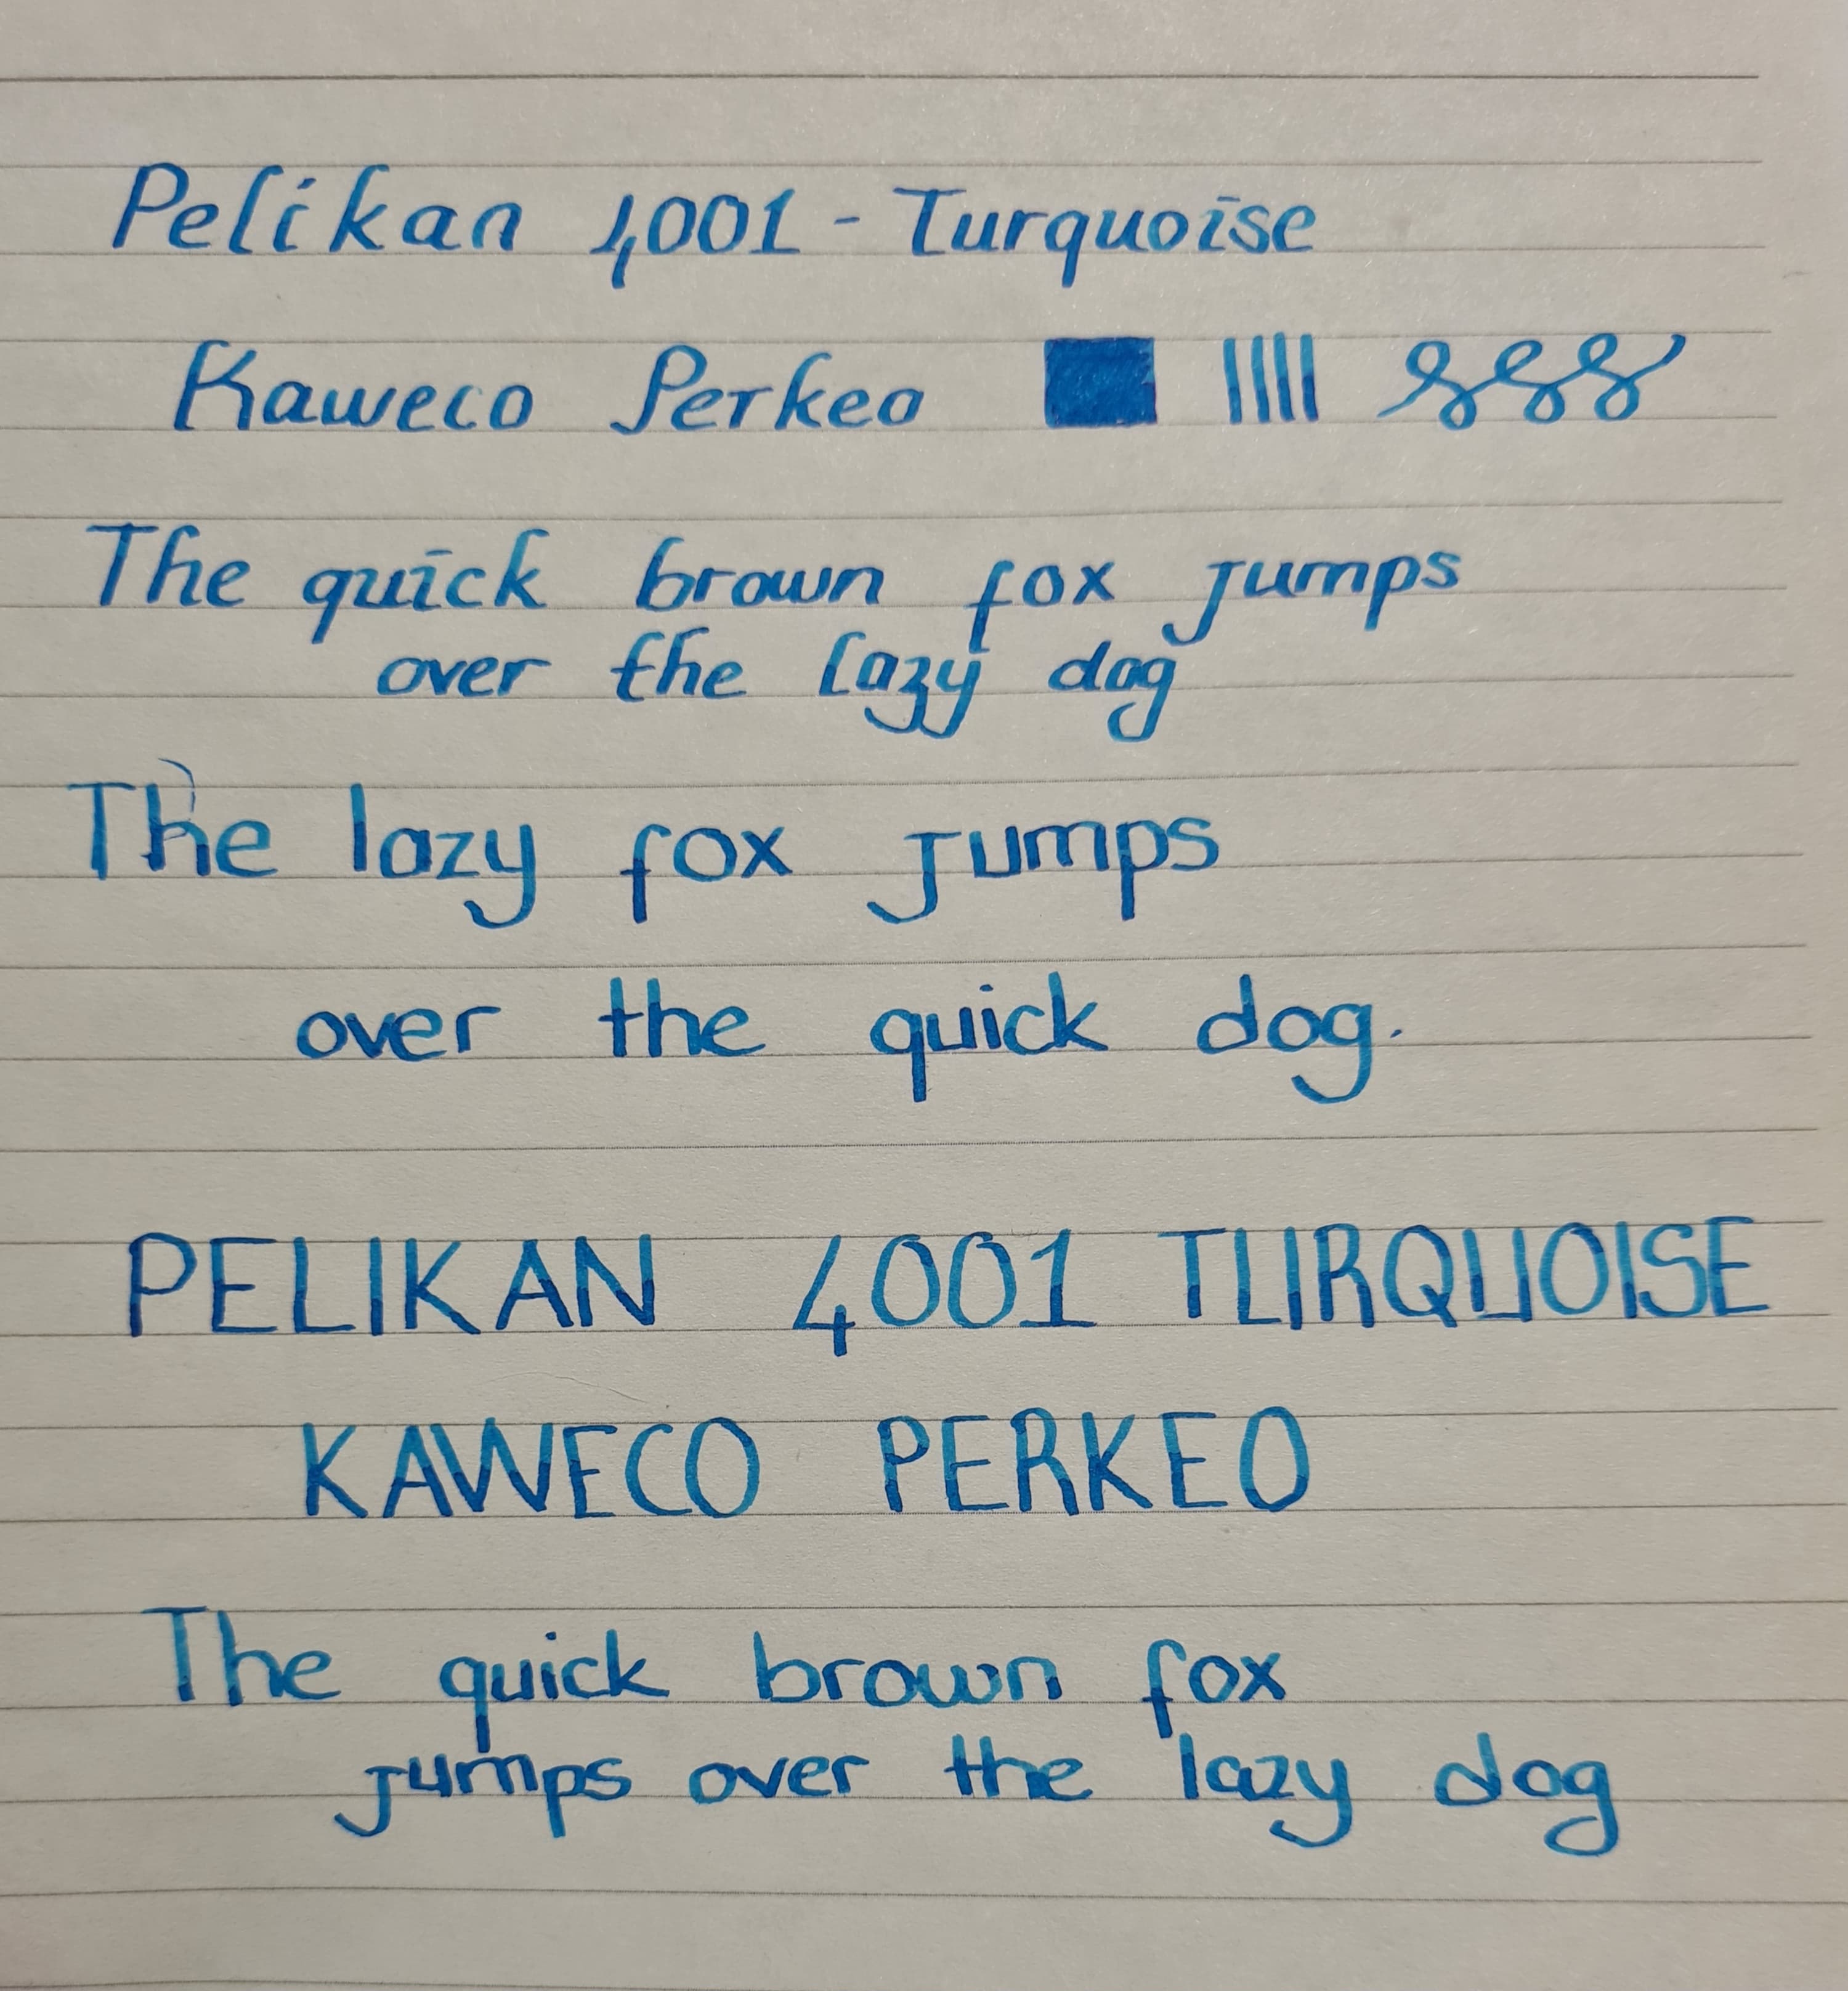 Pelikan 4001 - Turquoise
Kaweco Perkeo
The quick brown fox jumps
over the lazy dog
The lazy fox jumps
over the quick dog.
PELIKAN 4001 TURQUOISE
KAWECO PERKEO
The quick brown fox
jumps over the lazy dog